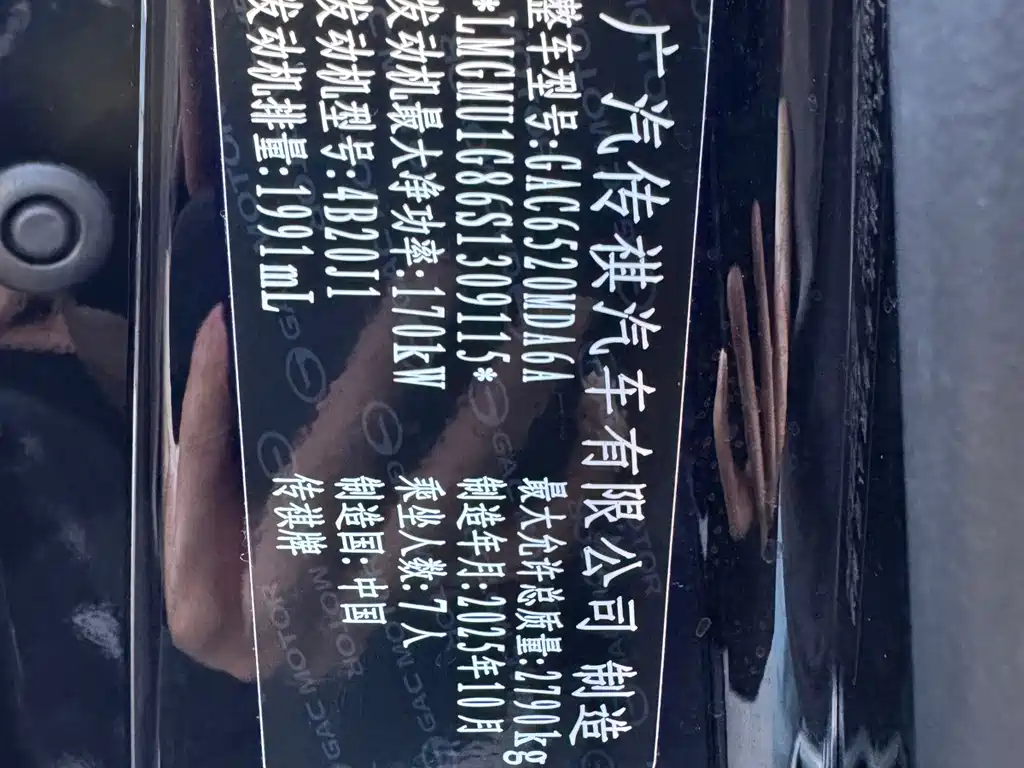 广汽传祺汽车有限公司 制造
整车型号:GAC6520MDA6A 最大允许总质量:2790kg
*LMGMU1G86S1309115* 制造年月:2025年10月
发动机最大净功率:170kW 乘坐人数:7人
发动机型号:4B20J1 制造国:中国
发动机排量:1991mL 传祺牌
GAC MOTOR